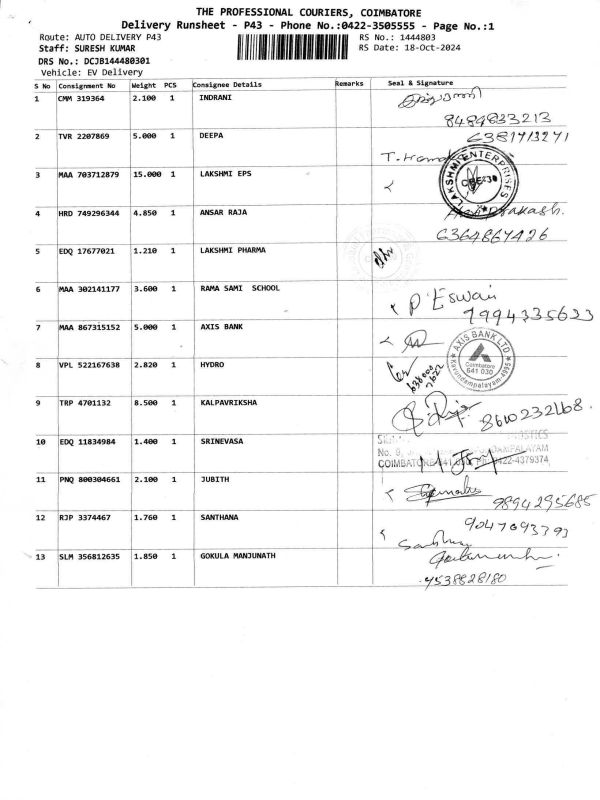 THE PROFESSIONAL COURIERS, COIMBATORE
Delivery Runsheet - P43 - Phone No.:0422-3505555 - Page No.:1
Route: AUTO DELIVERY P43
RS No.: 1444803
Staff: SURESH KUMAR
RS Date: 18-Oct-2024
DRS No.: DCJB144480301
Vehicle: EV Delivery
S No Consignment No Weight PCS Consignee Details Remarks Seal & Signature
1 CMM 319364 2.100 1 INDRANI
8489833213
2 TVR 2207869 5.000 1 DEEPA 6381713271
3 MAA 703712879 15.000 1 LAKSHMI EPS
LAKSHMI ENTERPRISES
4 HRD 749296344 4.850 1 ANSAR RAJA
6364867426
5 EDQ 17677021 1.210 1 LAKSHMI PHARMA
6 MAA 302141177 3.600 1 RAMA SAMI SCHOOL
P. Eswari
7994335623
7 MAA 867315152 5.000 1 AXIS BANK
AXIS BANK LTD
Coimbatore
641 030
8 VPL 522167638 2.820 1 HYDRO
9 TRP 4701132 8.500 1 KALPAVRIKSHA
8610232168.
10 EDQ 11834984 1.400 1 SRINEVASA
COIMBATORE
0422-4379374
11 PNQ 800304661 2.100 1 JUBITH
9894295685
12 RJP 3374467 1.760 1 SANTHANA
9047093793
13 SLM 356812635 1.850 1 GOKULA MANJUNATH
9538828180